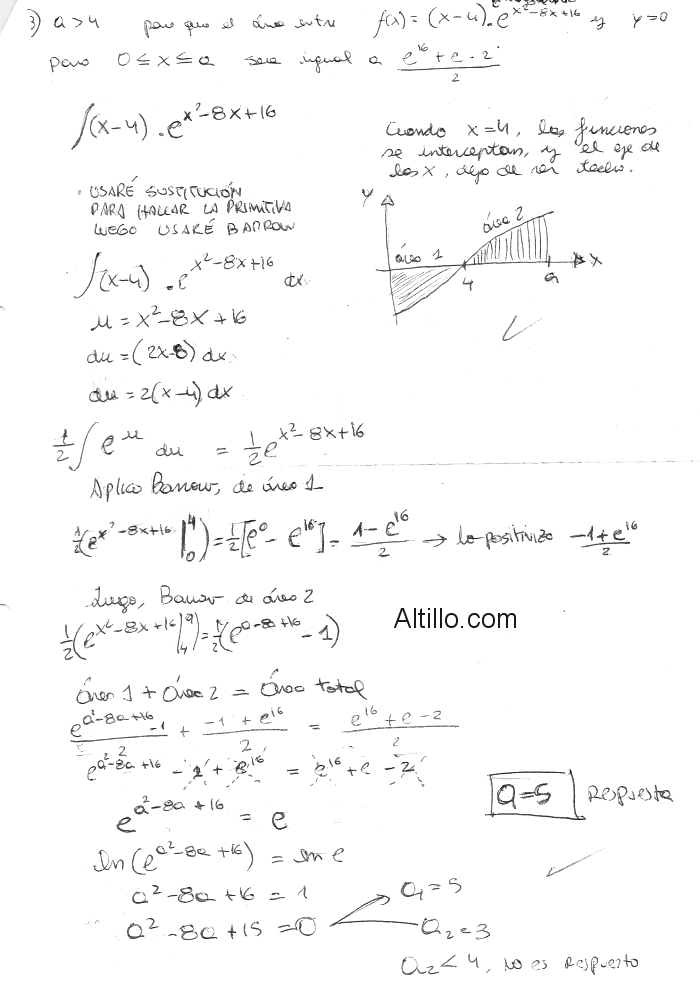 3) a > 4 para que el área entre f(x) = (x-4).e^{x²-8x+16} y y=0
para 0 ≤ x ≤ a sea igual a (e^{16} + e - 2)/2
∫(x-4) . e^{x²-8x+16}
Cuando x=4, las funciones
se interceptan, y el eje de
las X, dejo de ser techo.
· USARÉ SUSTITUCIÓN
PARA HALLAR LA PRIMITIVA
LUEGO USARÉ BARROW
Y
área 1
área 2
4
a
X
∫(x-4) . e^{x²-8x+16} dx
u = x²-8x+16
du = (2x-8) dx
du = 2(x-4) dx
1/2 ∫ e^{u} du = 1/2 e^{x²-8x+16}
Aplico Barrow, de área 1
1/2(e^{x²-8x+16} |_0^4) = 1/2[e^0 - e^{16}] = (1-e^{16})/2 → lo positivizo (-1+e^{16})/2
Luego, Barrow de área 2
1/2(e^{x²-8x+16} |_4^a) = 1/2(e^{a-8a+16} - 1)
Altillo.com
Área 1 + Área 2 = Área total
(e^{a²-8a+16} -1)/2 + (-1 + e^{16})/2 = (e^{16} + e - 2)/2
e^{a²-8a+16} - 2 + e^{16} = e^{16} + e - 2
e^{a²-8a+16} = e
a=5 Respuesta
ln(e^{a²-8a+16}) = ln e
a²-8a+16 = 1
a²-8a+15 = 0
a₁=5
a₂=3
a₂<4, no es respuesta